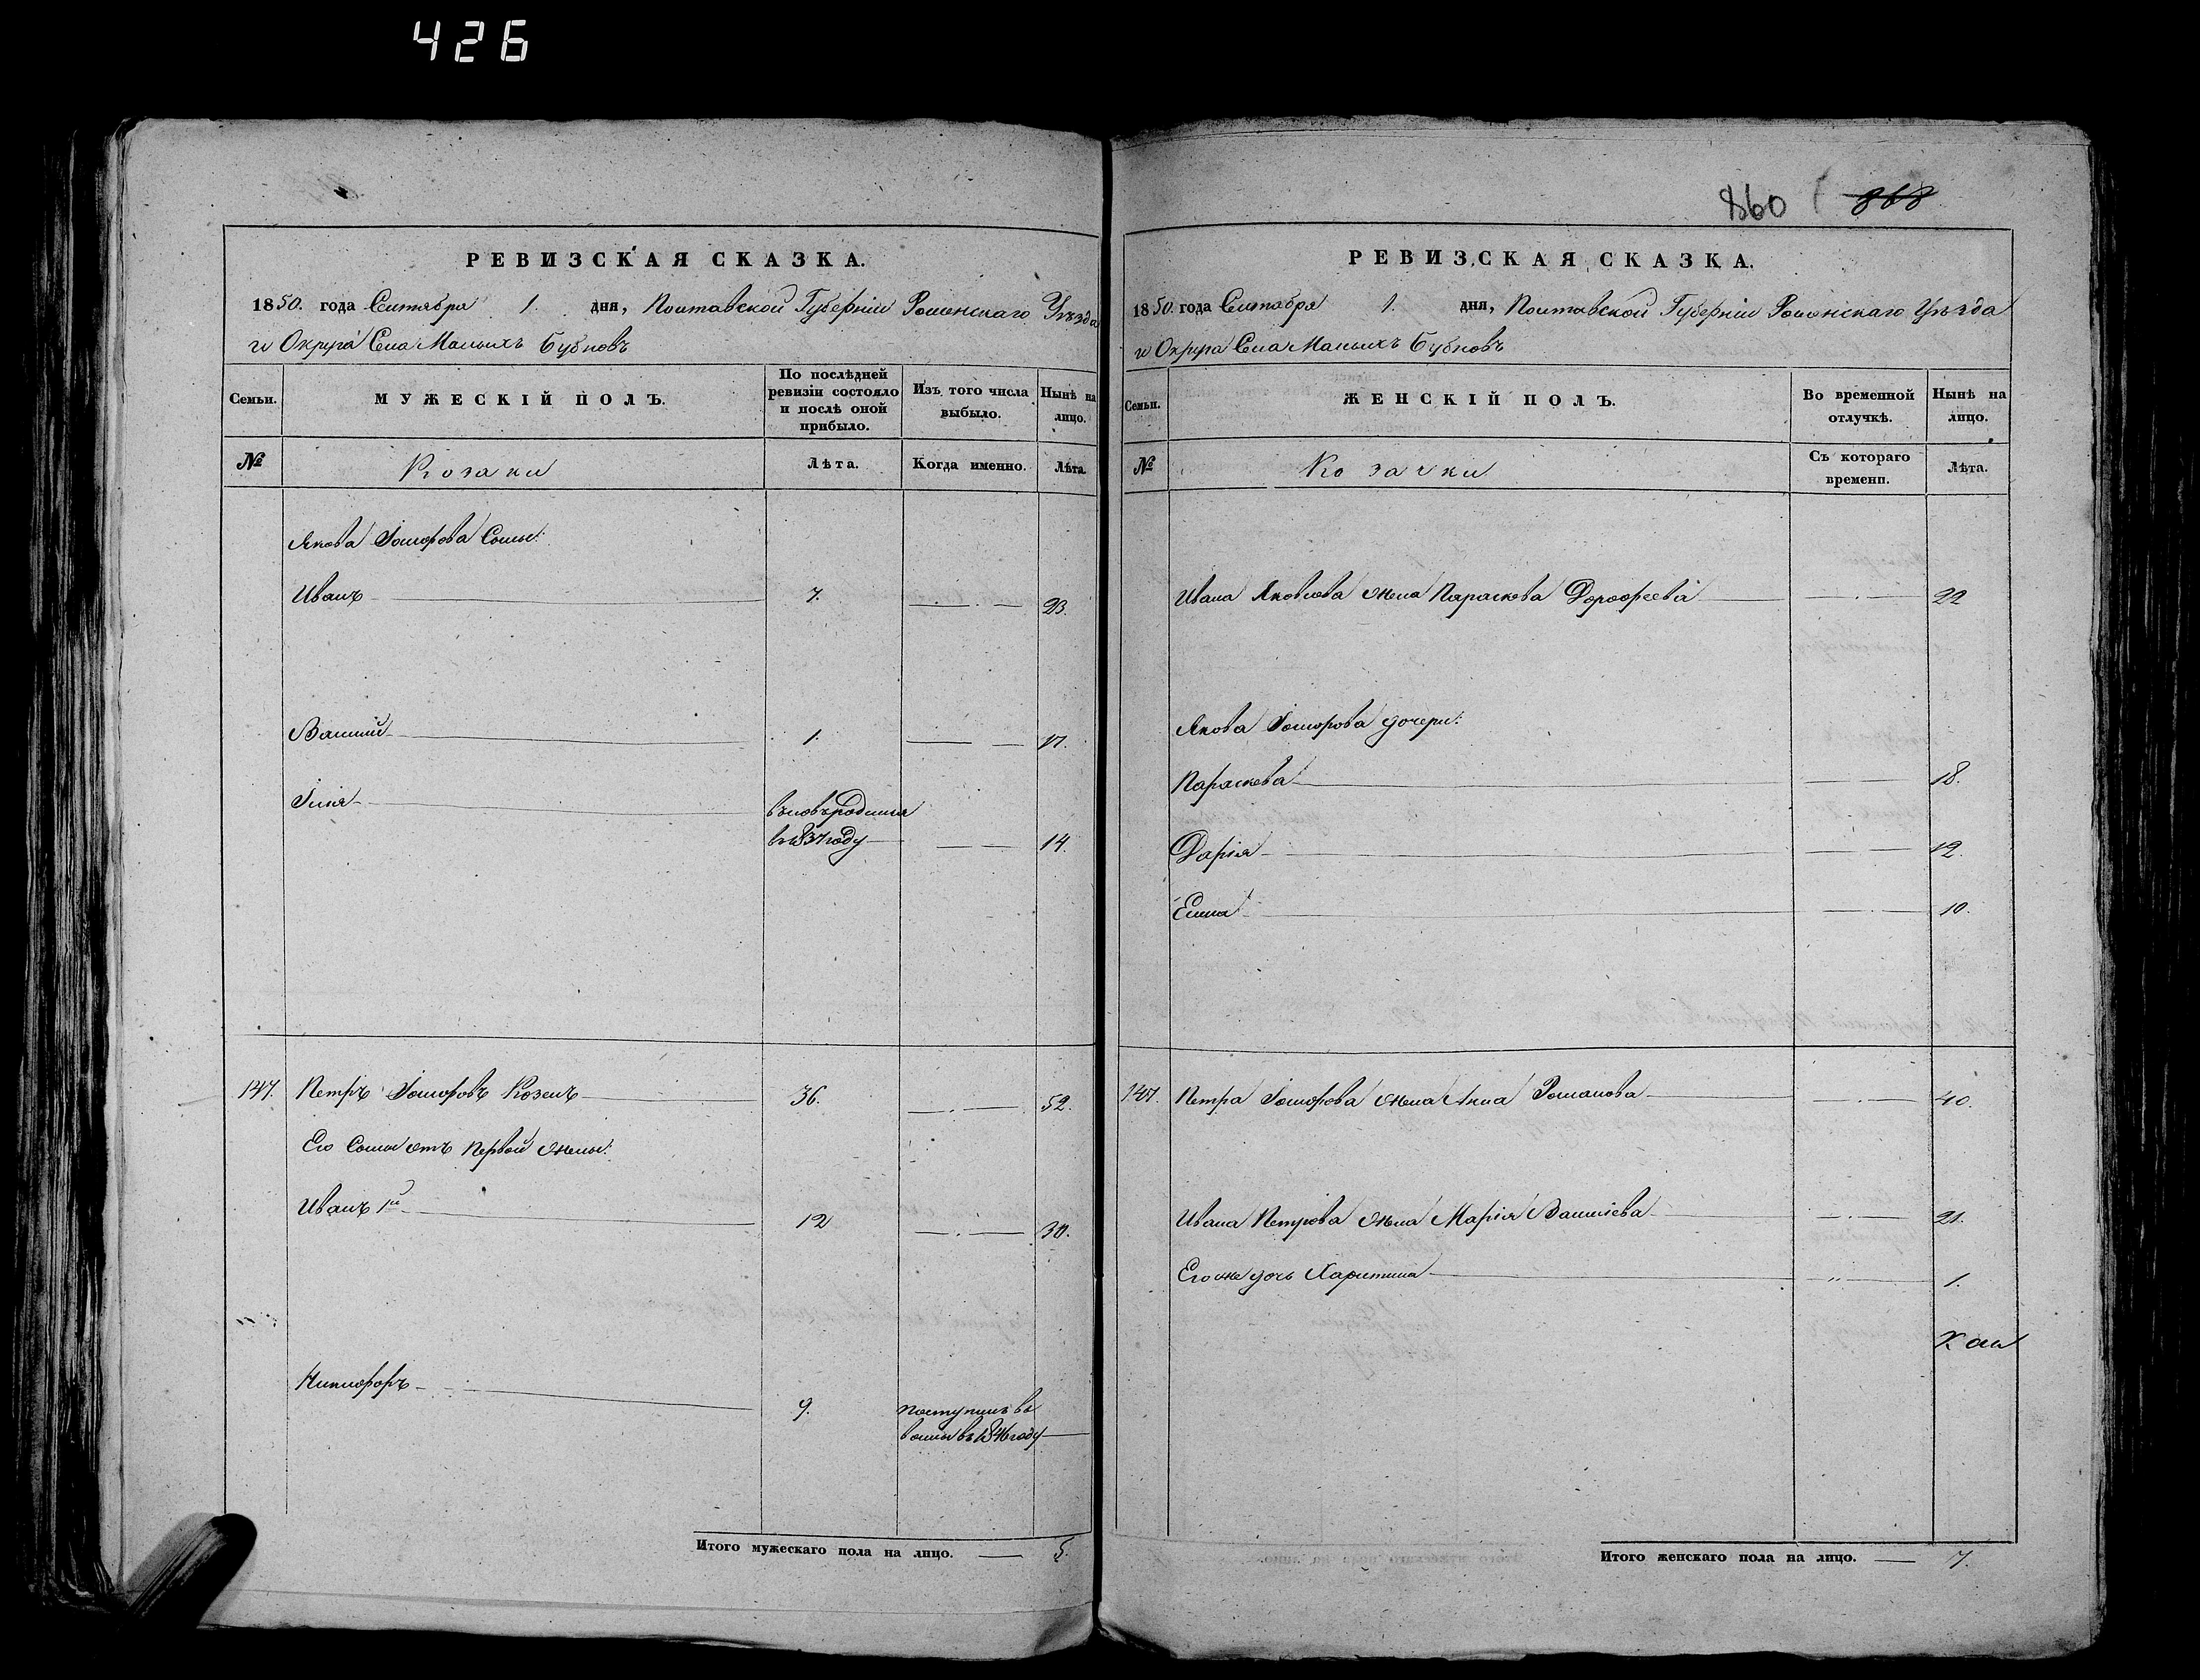 426
РЕВИЗСКАЯ СКАЗКА.
1850. года Сентября 1. дня, Полтавской Губерніи Роменскаго Уѣзда
и Округа Села Малыхъ Бубновъ
Семьи.
МУЖЕСКІЙ ПОЛЪ.
По послѣдней ревизіи состояло и послѣ оной прибыло.
Изъ того числа выбыло.
Нынѣ на лицо.
№
Козаки
Лѣта.
Когда именно.
Лѣта.
Якова Сыны:
Иванъ 7. 23.
Василій 1. 17.
Илія вновь родился
въ 1837 году 14.
147. Петръ Козелъ 36. 52.
Его Сыны отъ первой жены:
Иванъ 1й 12 30.
Никифоръ 9. поступилъ въ
въ 1846 году
Итого мужескаго пола на лицо. 5.
860 868
РЕВИЗСКАЯ СКАЗКА.
1850. года Сентября 1. дня, Полтавской Губерніи Роменскаго Уѣзда
и Округа Села Малыхъ Бубновъ
Семьи.
ЖЕНСКІЙ ПОЛЪ.
Во временной отлучкѣ.
Нынѣ на лицо.
№
Козачки
Съ котораго времени.
Лѣта.
Ивана Яковлева жена Параскева Дорофеева 22
Якова дочери:
Параскева 18.
Дарія 12.
Елена 10.
147. Петра жена Анна Романова 40.
Ивана Петрова жена Марія Василіева 21.
Его же дочь Харитина 1.
Итого женскаго пола на лицо. 7.